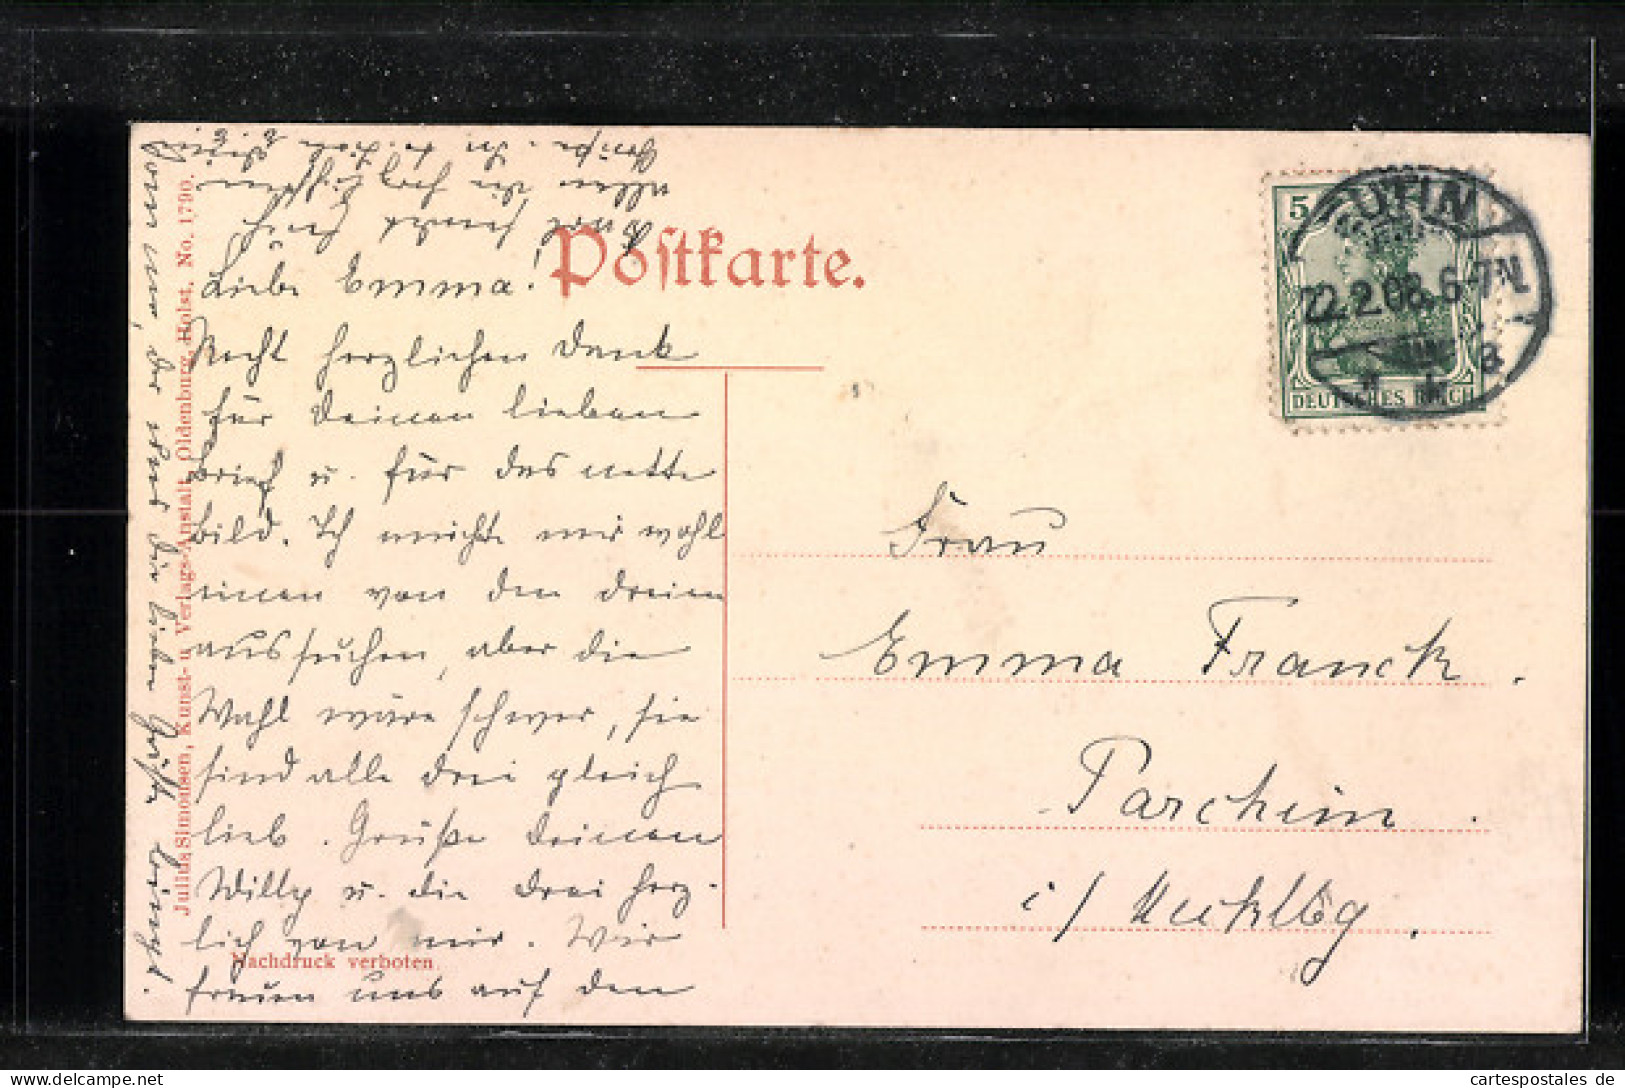 Postkarte.
Liebe Emma!
Recht herzlichen Dank
für Deinen lieben
Brief u. für das nette
Bild. Ich möchte mir wohl
einen von den dreien
aussuchen, aber die
Wahl wäre schwer, sie
sind alle drei gleich
lieb. Grüße Deinen
Willy u. die drei herz-
lich von mir. Wir
freuen uns auf den
der uns die lieben Gäste bringt.
Julius Simonsen, Kunst- u. Verlags-Anstalt, Oldenburg, Holst. No. 1790.
Nachdruck verboten.
5
EUTIN
22.2.08. 6-7N.
DEUTSCHES REICH
Frau
Emma Franck.
Parchim.
i/ Mecklbg.
cartespostales de